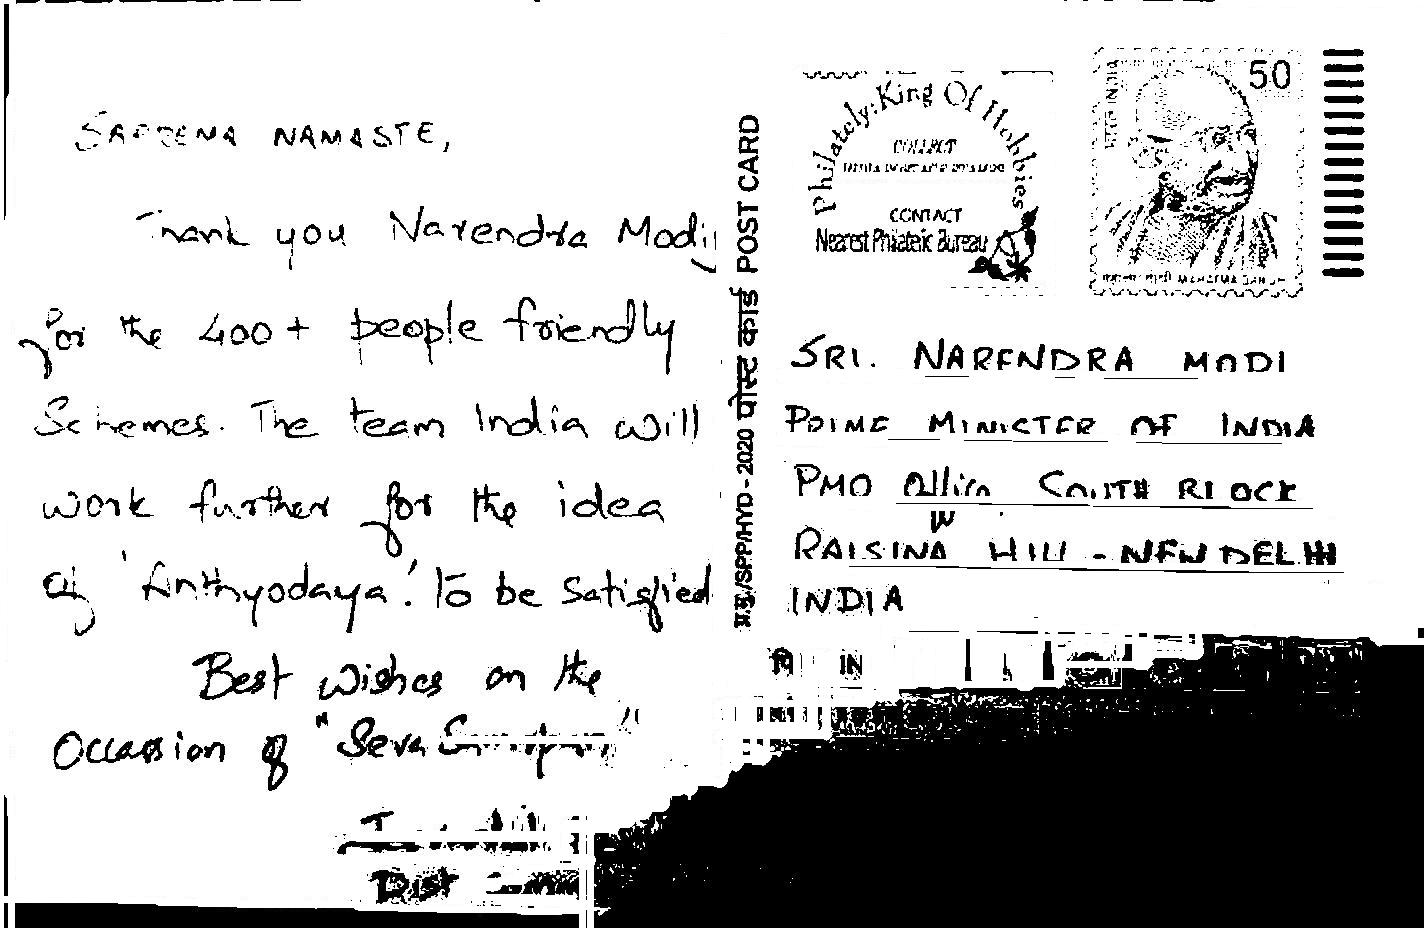 SAPREMA NAMASTE,
Thank you Narendra Modiji
for the 400+ people friendly
Schemes. The team India will
work further for the idea
of 'Anthyodaya'. To be Satisfied
Best Wishes on the
Occassion of "Seva
Dist
POST CARD
पोस्ट कार्ड
/SPP/HYD-2020
Philately: King Of Hobbies
COLLECT
CONTACT
Nearest Philatelic Bureau
50
MAHATMA GANDHI
SRI. NARENDRA MODI
PRIME MINISTER OF INDIA
PMO Office SOUTH BLOCK
RAISINA HILL - NEW DELHI
INDIA
पिन PIN